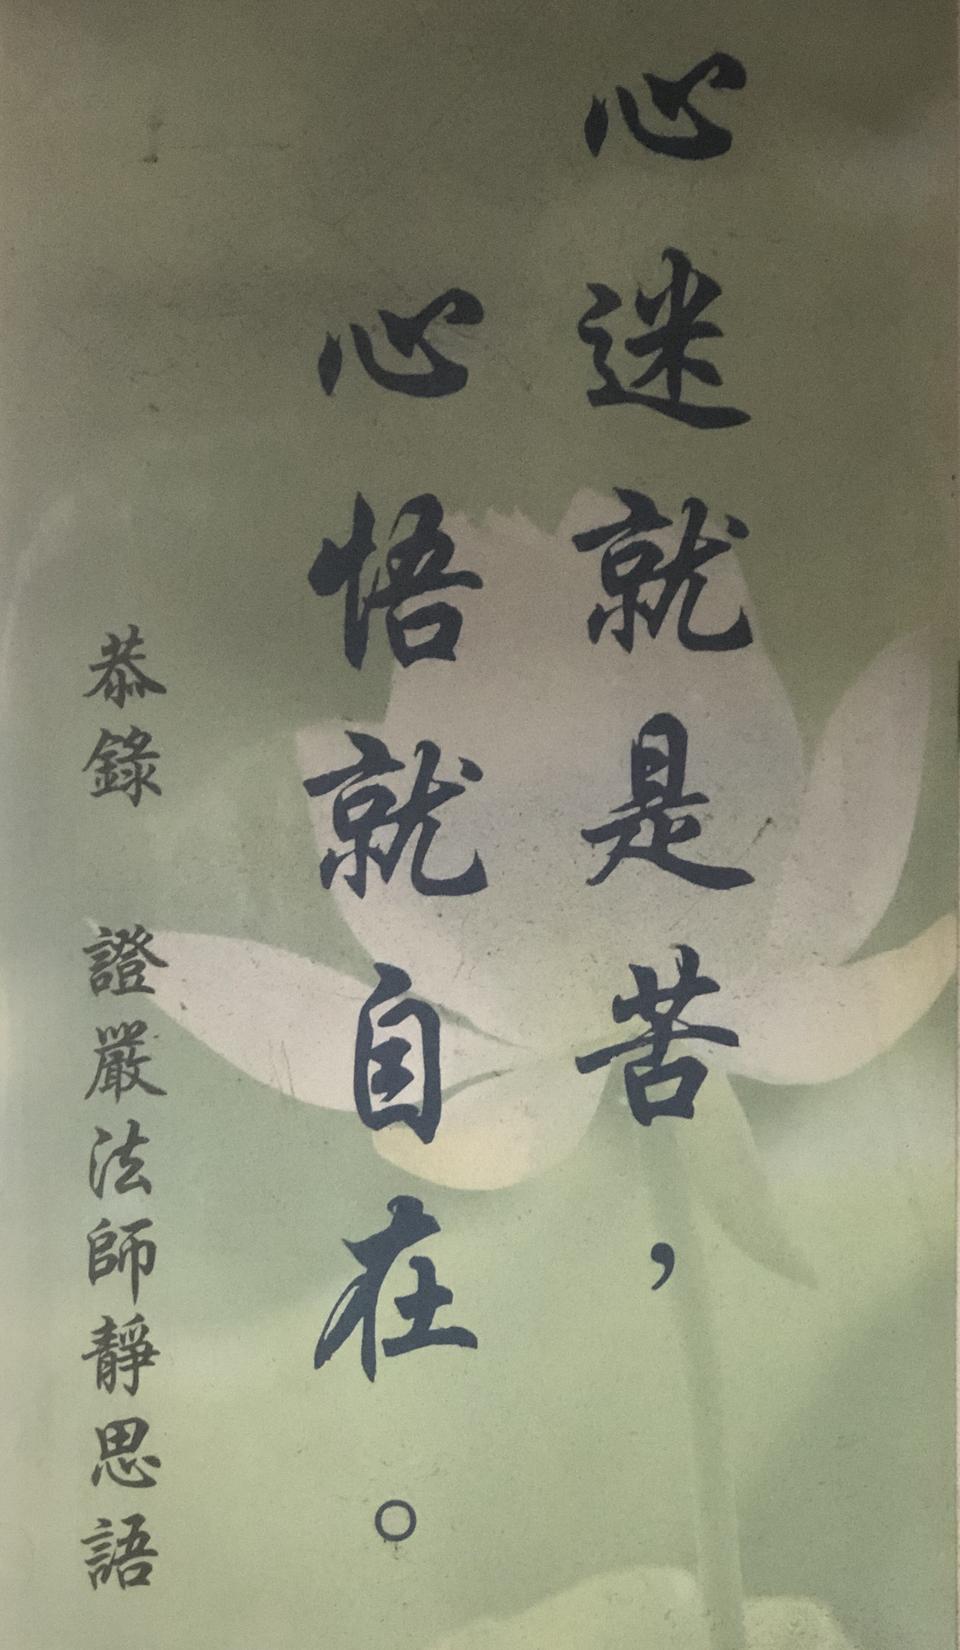 心迷就是苦，
心悟就自在。
恭錄　證嚴法師靜思語